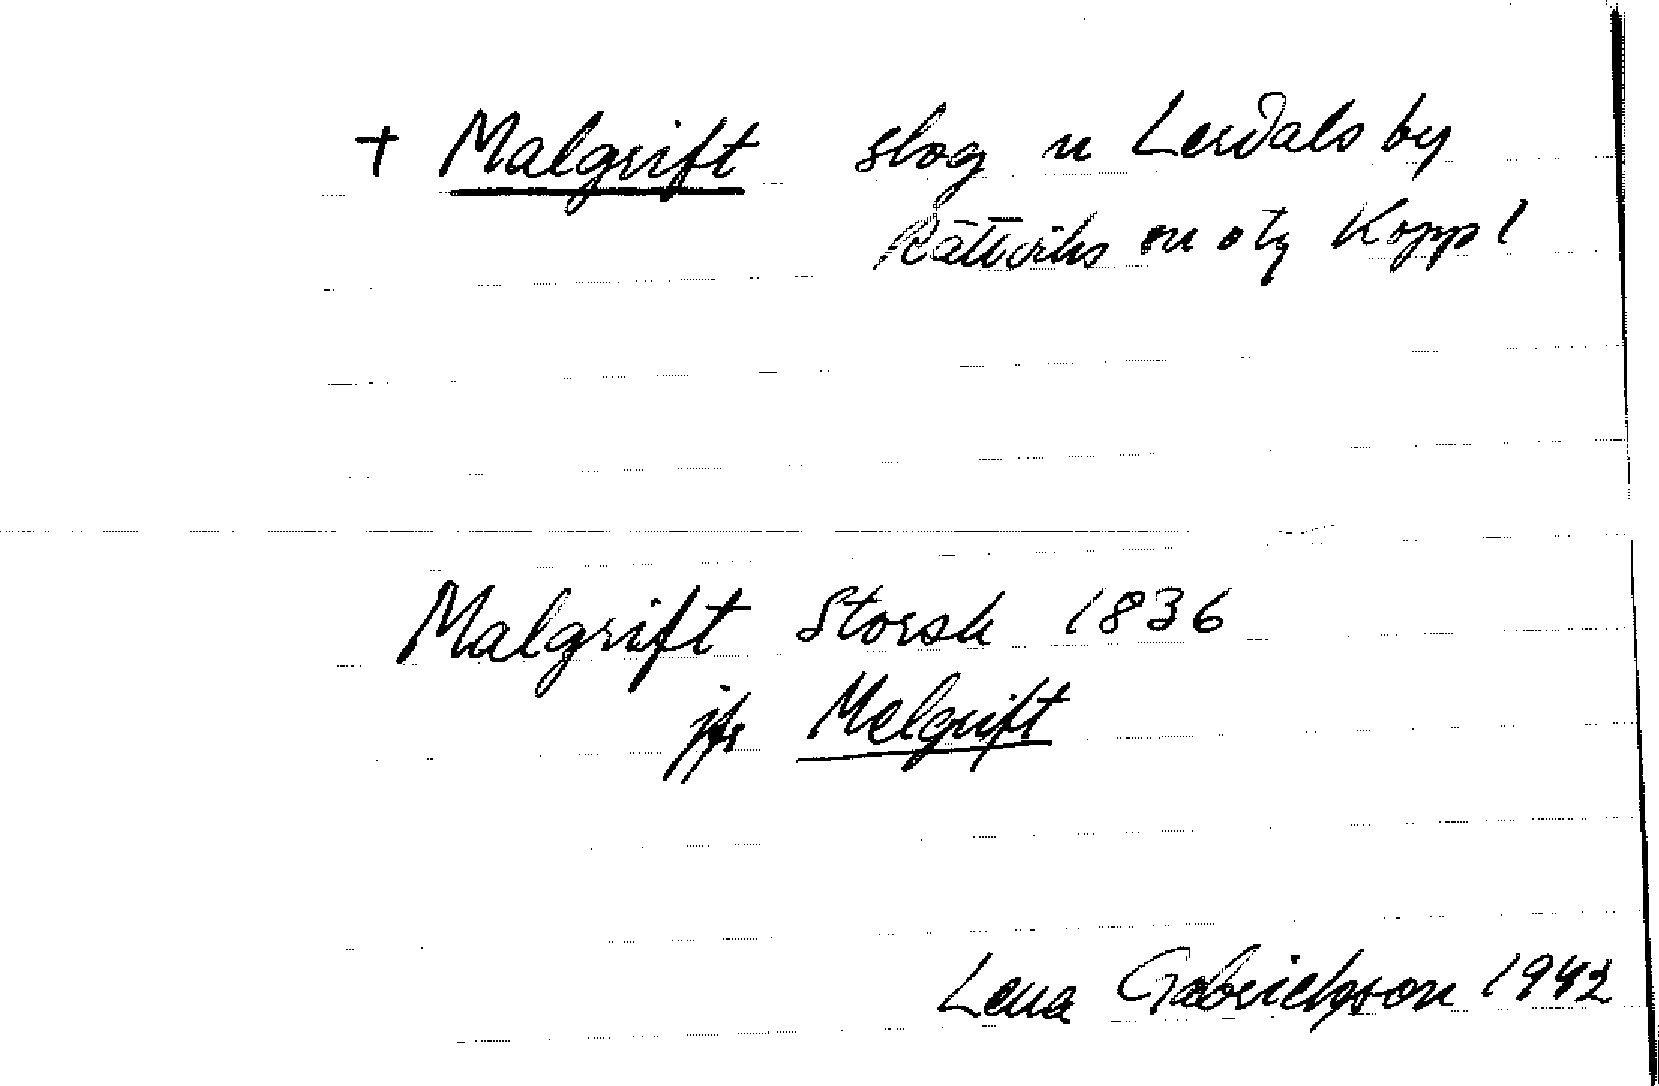 + Malgrift slog u Lerdals by
Rättviks sn o tg Kopp l
Malgrift Storsk 1836
jfr Melgrift
Lena Gabrielsson 1942